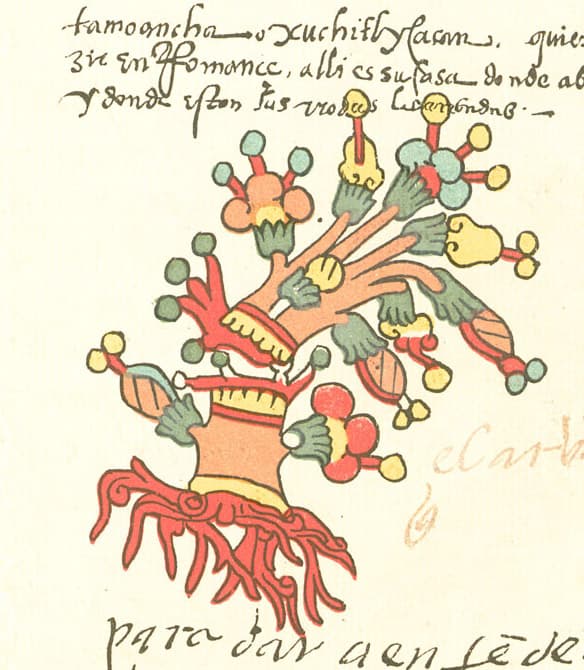 tamoancha o xuchitlycacan. quie
zir en Romance, alli es su casa donde ab
y donde estan sus
el arb
para dar a en